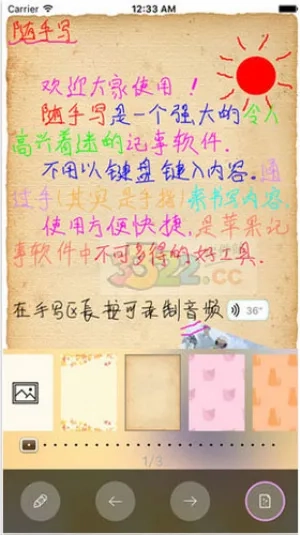 Carrier 12:33 AM
随手写
欢迎大家使用！
随手写是一个强大的令人
高兴着迷的记事软件.
不用以键盘键入内容.通
过手(其实是手指)来书写内容,
使用方便快捷,是苹果记
事软件中不可多得的好工具.
3322.cc
在手写区长按可录制音频 36"
1/3